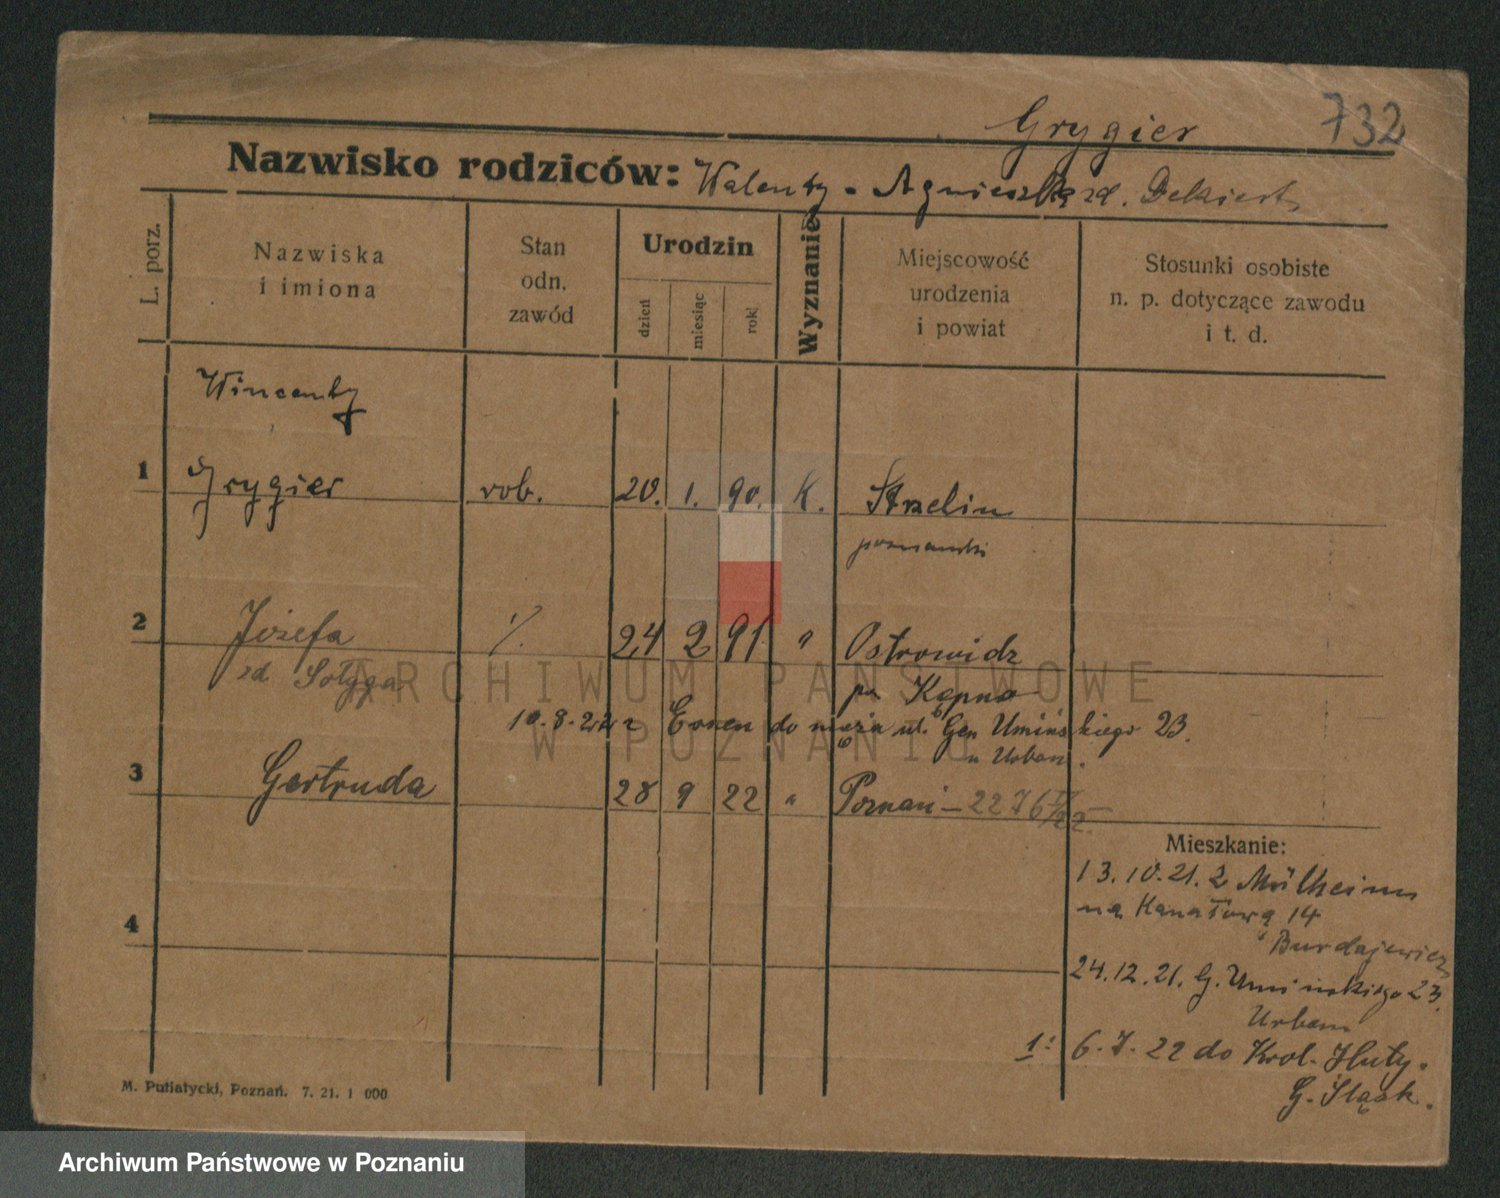 Grygier 732
Nazwisko rodziców: Walenty - Agnieszka zd. Dekiert
L. porz.
Nazwiska i imiona
Stan odn. zawód
Urodzin
dzień
miesiąc
rok
Wyznanie
Miejscowość urodzenia i powiat
Stosunki osobiste n. p. dotyczące zawodu i t. d.
Wincenty
1 Grygier rob. 20. 1. 90. K. Strzelin
poznański
2 Józefa % 24 2 91. " Ostrowidz
zd Sołyga po. Kępno
10.8. do męża ul. Gen Umińskiego 23.
u Urban.
3 Gertruda 28 9 22 " Poznań - 2276
Mieszkanie:
13.10.21. z Mülheim
na Kanałową 14
Burdajewicz
4
24.12.21. G. Umińskiego 23.
Urban
1: 6.7.22 do Król. Huty.
G. Śląsk.
M. Putiatycki, Poznań. 7. 21. 1 000
ARCHIWUM PAŃSTWOWE
W POZNANIU
Archiwum Państwowe w Poznaniu